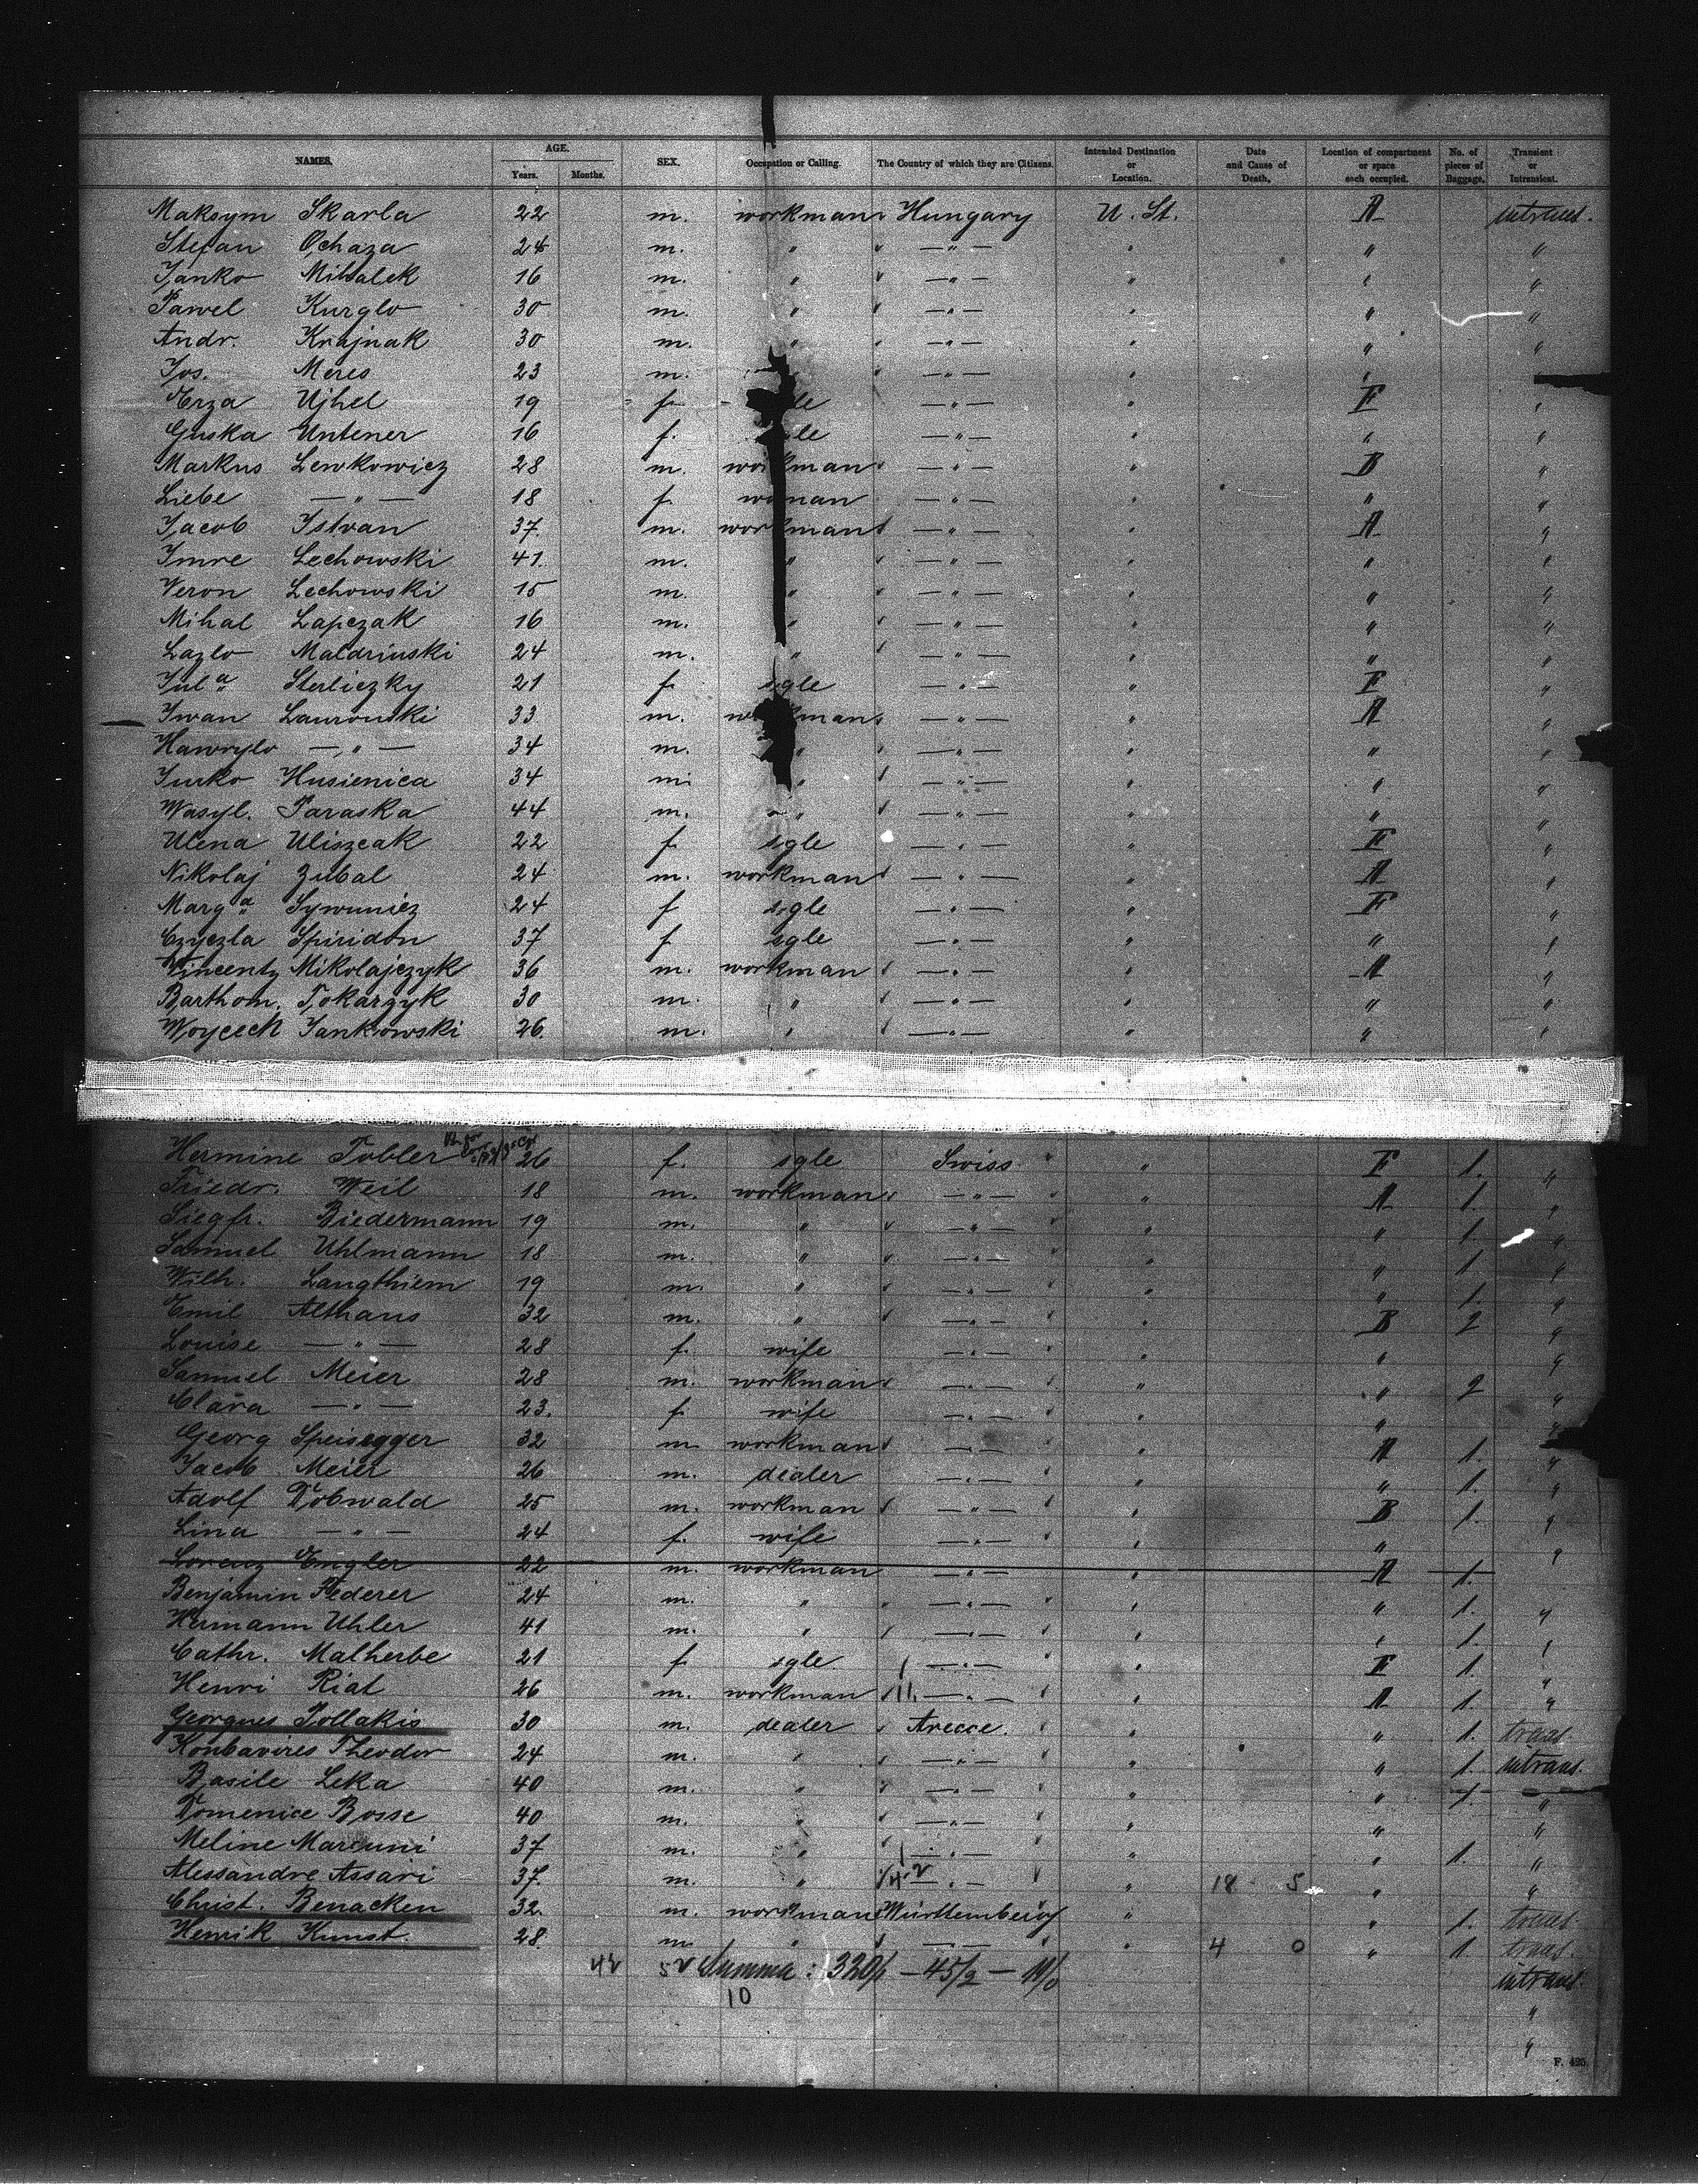 NAMES. AGE. Years. Months. SEX. Occupation or Calling. The Country of which they are Citizens. Intended Destination or Location. Date and Cause of Death. Location of compartment or space each occupied. No. of pieces of Baggage. Transient or Intransient.
Maksym Skarla 22 m. workman Hungary U. St. A intrans.
Stefan Ochaza 24 m. " —"— " " "
Janko Mihalek 16 m. " —"— " " "
Pawel Kurglo 30 m. " —"— " " "
Andr. Krajnak 30 m. " —"— " " "
Jos. Meres 23 m. —"— " " "
Erza Ujhel 19 f. —"— " F "
Guska Untener 16 f. —"— " " "
Markus Lewkowicz 28 m. workman —"— " B "
Liebe —"— 18 f. woman —"— " " "
Jacob Istvan 37 m. workman —"— " A "
Imre Lechowski 41. m. " —"— " " "
Veron Lechowski 15 m. " —"— " " "
Mihal Lapczak 16 m. " —"— " " "
Lazlo Maldriuski 24 m. " —"— " " "
Jula Sterliczky 21 f. sgle —"— " F "
Iwan Laurouski 33 m. workman —"— " A "
Hawrylo —"— 34 m. " —"— " " "
Jurko Husienica 34 m. " —"— " " "
Wasyl. Paraska 44 m. " —"— " " "
Ulena Uliszcak 22 f sgle —"— " F "
Nikolaj Zubal 24 m. workman —"— " A "
Marga Sywuniez 24 f sgle —"— " F "
Czyczla Spiridon 37 f sgle —"— " " "
Vincenty Mikolajczyk 36 m. workman —"— " A "
Barthom. Tokarzyk 30 m. " —"— " " "
Woyceck Jankowski 26. m. " —"— " " "
Hermine Tobler 26 f. sgle Swiss " F 1. "
Friedr. Weil 18 m. workman —"— " A 1. "
Siegfr. Biedermann 19 m. " —"— " " 1. "
Samuel Uhlmann 18 m. " —"— " " 1 "
Wilh. Langthiem 19 m. " —"— " " 1. "
Emil Althaus 32 m. " —"— " B 2 "
Louise —"— 28 f. wife —"— " " "
Samuel Meier 28 m. workman —"— " " 2 "
Clara —"— 23. f. wife —"— " " "
Georg Speisegger 32 m workman —"— " A 1. "
Jacob Meier 26 m. dealer —"— " " 1. "
Adolf Dobwald 25 m. workman —"— " B 1. "
Lina —"— 24 f. wife —"— " " "
Lorenz Engler 22 m. workman —"— " A 1.
Benjamin Federer 24 m. " —"— " " 1. "
Hermann Uhler 41 m. " —"— " " 1. "
Cathr. Malherbe 21 f sgle —"— " F 1. "
Henri Riat 26 m. workman 11 —"— " A 1. "
Georgues Tollakis 30 m. dealer " " 1. trans.
Konbavires Theodor 24 m. " —"— " " 1. intrans.
Basile Leka 40 m. " —"— " " 1. "
Domenice Bosse 40 m. " —"— " " "
Meline Marcuni 37 m. " —"— " " 1. "
Alessandre Assari 37. m. " —"— " 18 5 " "
Christ. Benacken 32. m. workman Württemberg " " 1. trans.
Henrik Kunst. 28. m " —"— " 4 0 " 1. trans.
42 52 Summa: 320/1 — 45/2 — 11/0 intrans.
10 "
"
F. 425.